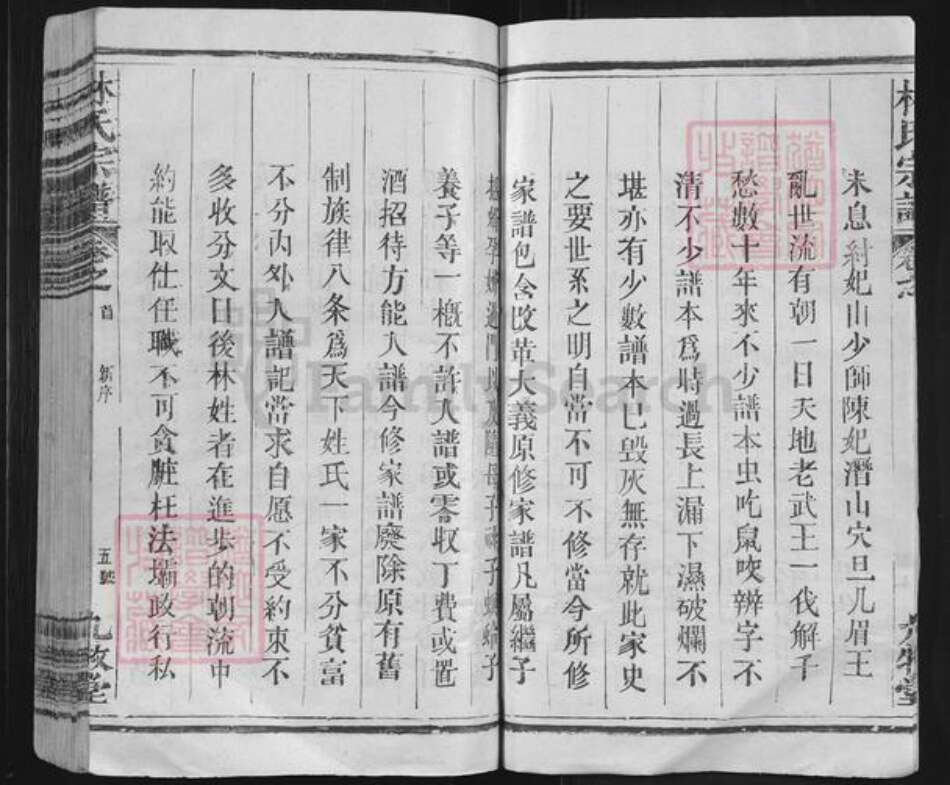 林氏宗譜
未息紂妃山少師陳妃潛山穴旦凡眉王
亂世流有朝一日天地老武王一伐解千
愁數十年來不少譜本虫吃鼠吹辨字不
清不少譜本爲時過長上漏下濕破爛不
堪亦有少數譜本已毁灰無存就此家史
之要世系之明自當不可不修當今所修
家譜包含改革大義原修家譜凡屬繼子
孕 過門 母子 子 子
養子等一概不許入譜或零收丁費或置
酒招待方能入譜今修家譜廢除原有舊
制族律八条爲天下姓氏一家不分貧富
不分內外入譜記當求自愿不受約束不
多收分文日後林姓者在進步的朝流中
約能取仕任職不可貪賍枉法壩政行私
林氏宗譜
卷之
首
新序
五號
九牧堂
FamilySearch